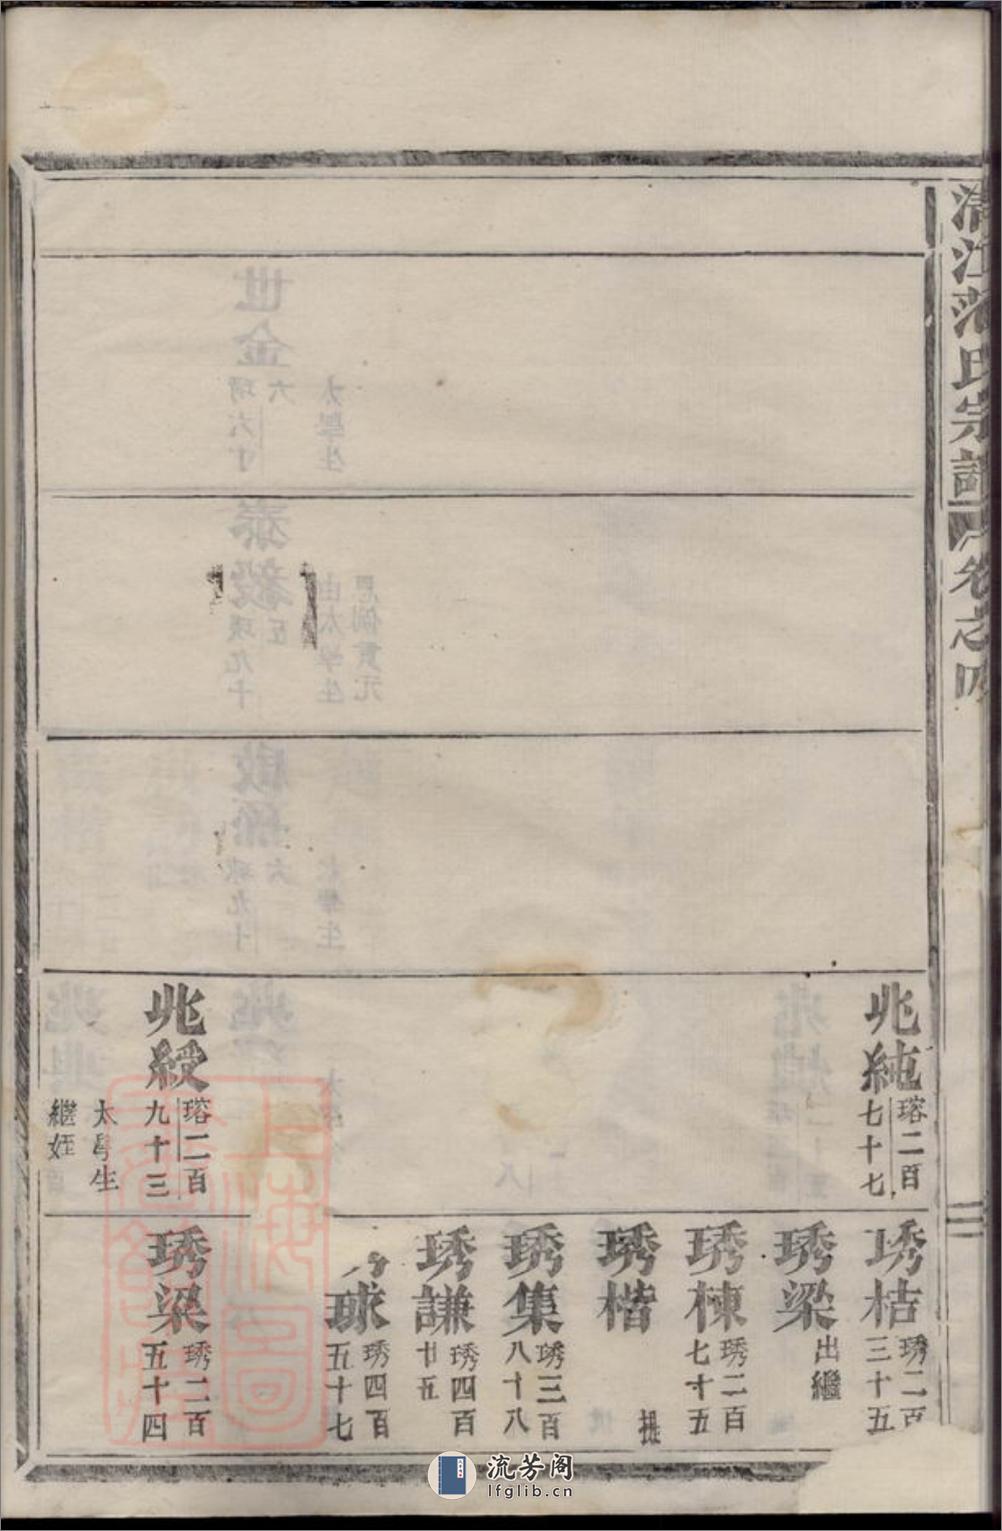 清江范氏宗譜
卷之四
三
兆純
瑢二百
七十七
琇桔
琇二百
三十五
琇梁
出繼
琇棟
琇二百
七十五
琇楷
琇集
琇三百
八十八
琇謙
琇四百
廿五
球
琇四百
五十七
兆綬
瑢二百
九十三
太學生
繼姪
琇梁
琇二百
五十四
流芳阁
lfglib.cn